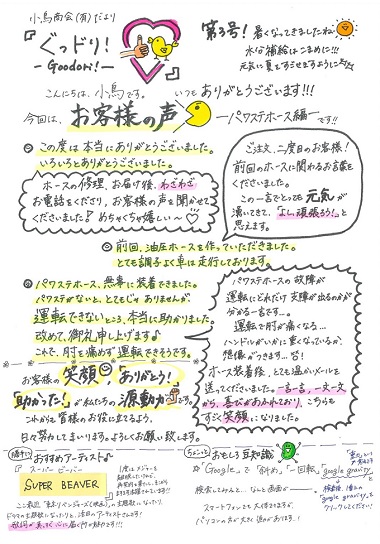 小鳥商会(有)だより
『ぐっドリ!
-Goodori!-』
第3号! 暑くなってきましたね
水分補給はこまめに!!!
元気に夏をすごせますように
こんにちは、小鳥です。
いつもありがとうございます!!!
今回は、お客様の声
ーパワステホース編ー
です!!
この度は本当にありがとうございました。
いろいろとありがとうございました。
ホースの修理、お届け後、わざわざ
お電話をくださり、お客様の声を聞かせて
くださいました! めちゃくちゃ嬉しい〜♡
ご注文、二度目のお客様!
前回のホースに関わるお言葉を
くださいました。
この一言でとっても元気が
湧いてきて、「よし、頑張ろう!」と
思えます。
前回、油圧ホースを作っていただきました。
とても調子よく車は走行しております。
パワステホース、無事に装着できました。
パワステがないと、とてもじゃありませんが、
運転できないところ、本当に助かりました。
改めて、御礼申し上げます♪
これで、肘を痛めず運転できそうです。
パワステホースの故障が
運転にどれだけ支障が出るのかが
分かる一言です…。
運転で肘が痛くなる…
ハンドルがいかに重くなっているか、
想像がつきます…苦!
ホース装着後、とても温かいメールを
送ってくださいました。一言一言、一文一文
から、喜びがあふれており、こちらも
すごく笑顔になりました。
お客様の笑顔、「ありがとう!」
「助かった!」が私たちの源動力
これからも皆様のお役に立てるよう、
日々努力してまいります。よろしくお願い致します。
おすすめアーティスト♪
スーパー ビーバー
SUPER BEAVER
ここ最近「東京リベンジャーズ(映画)」の主題歌になったり、
ドラマの主題歌になったりと、注目のアーティストです!
歌詞が真っすぐ心に届く所が魅力です!!!
ちょこっと おもしろ豆知識
☆"Google"で「斜め」、「一回転」、「google gravity」と
検索してみると…なんと画面が…
スマートフォンでも大丈夫ですが、
パソコンの方が大きく動きがあります…!